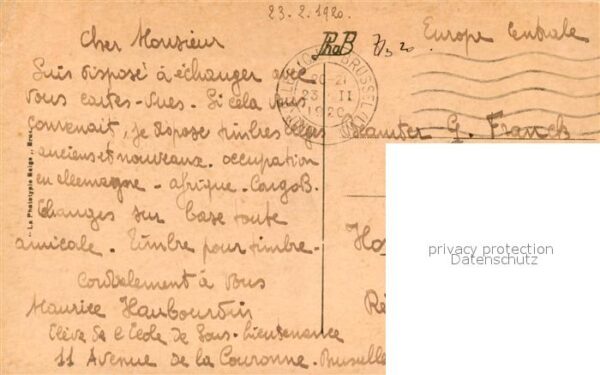 23.2.1920.
Cher Monsieur
PhoB
7/3 20
Europe Centrale
Suis disposé à échanger avec
vous cartes-vues. Si cela vous
convenait, je dispose timbres belges
anciens et nouveaux. occupation
en allemagne - afrique - Congo B.
Echanges sur base toute
amicale. Timbre pour timbre -
Cordialement à Vous
Maurice Haubourdin
Elève de l'Ecole de Sous-Lieutenance
11 Avenue de la Couronne. Bruxelles
G. Franck
20-21
23 II
1920
BRUSSEL
"La Phototypie Belge", Brux
privacy protection
Datenschutz